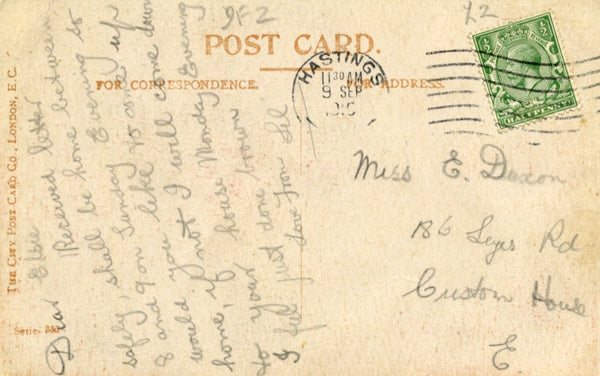 9F2
£2
POST CARD.
FOR CORRESPONDENCE.
FOR ADDRESS.
HASTINGS
11 30 AM
9 SEP
HALFPENNY
THE CITY POST CARD CO., LONDON, E.C.
Series
Dear Elsie
Received letter
safely, shall be home between
8 and 9 on Sunday Evening so
would you like to come up
home, if not I will come down
to your house Monday Evening
I feel just done brown
Love from Lil
Miss E. Duxon
186 Leyes Rd
Custom House
E